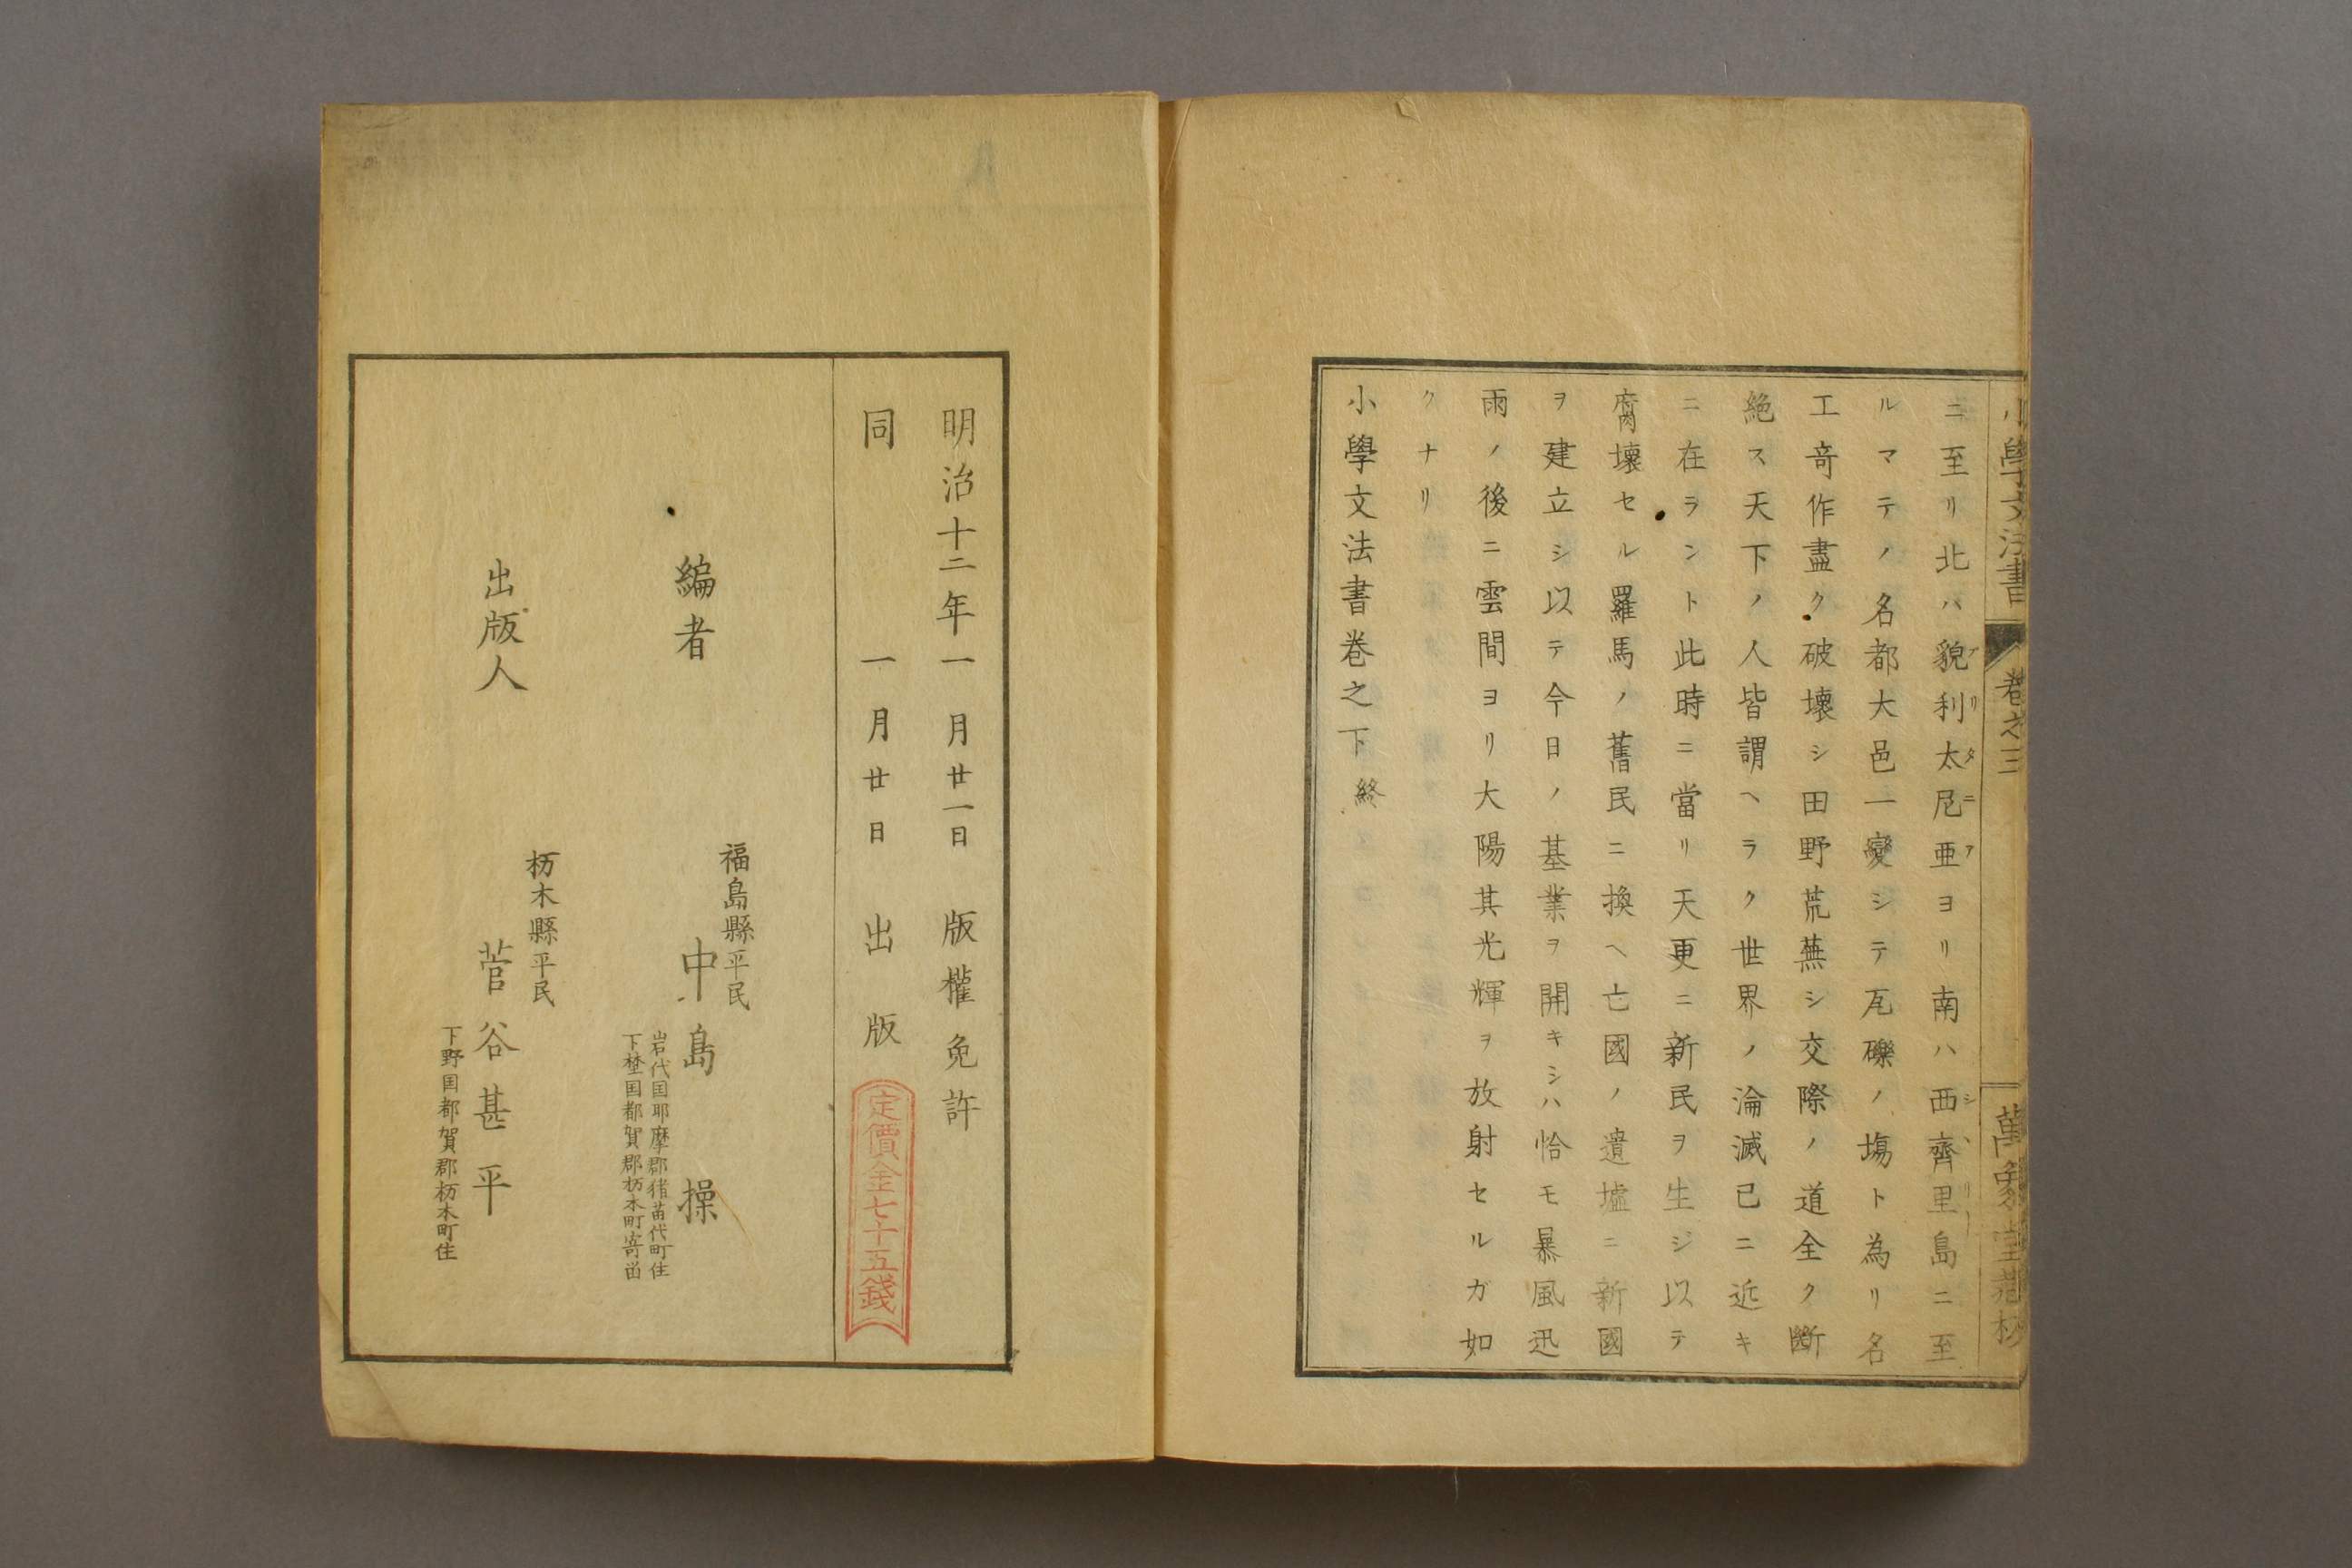 小學文法書 卷之三
ニ至リ北ハ貌利太尼亜ヨリ南ハ西齊里島ニ至
ルマテノ名都大邑一變シテ瓦礫ノ塲ト為リ名
工奇作盡ク破壊シ田野荒蕪シ交際ノ道全ク斷
絶ス天下ノ人皆謂ヘラク世界ノ淪滅已ニ近キ
ニ在ラント此時ニ當リ天更ニ新民ヲ生ジ以テ
腐壊セル羅馬ノ舊民ニ換ヘ亡國ノ遺墟ニ新國
ヲ建立シ以テ今日ノ基業ヲ開キシハ恰モ暴風迅
雨ノ後ニ雲間ヨリ大陽其光輝ヲ放射セルガ如
クナリ
小學文法書卷之下終
明治十二年一月廿一日版權免許
同一月廿日出版
定價金七十五錢
編者
福島縣平民
中島操
岩代国耶摩郡猪苗代町住
下埜国都賀郡杤木町寄畄
出版人
杤木縣平民
菅谷甚平
下野国都賀郡杤木町住